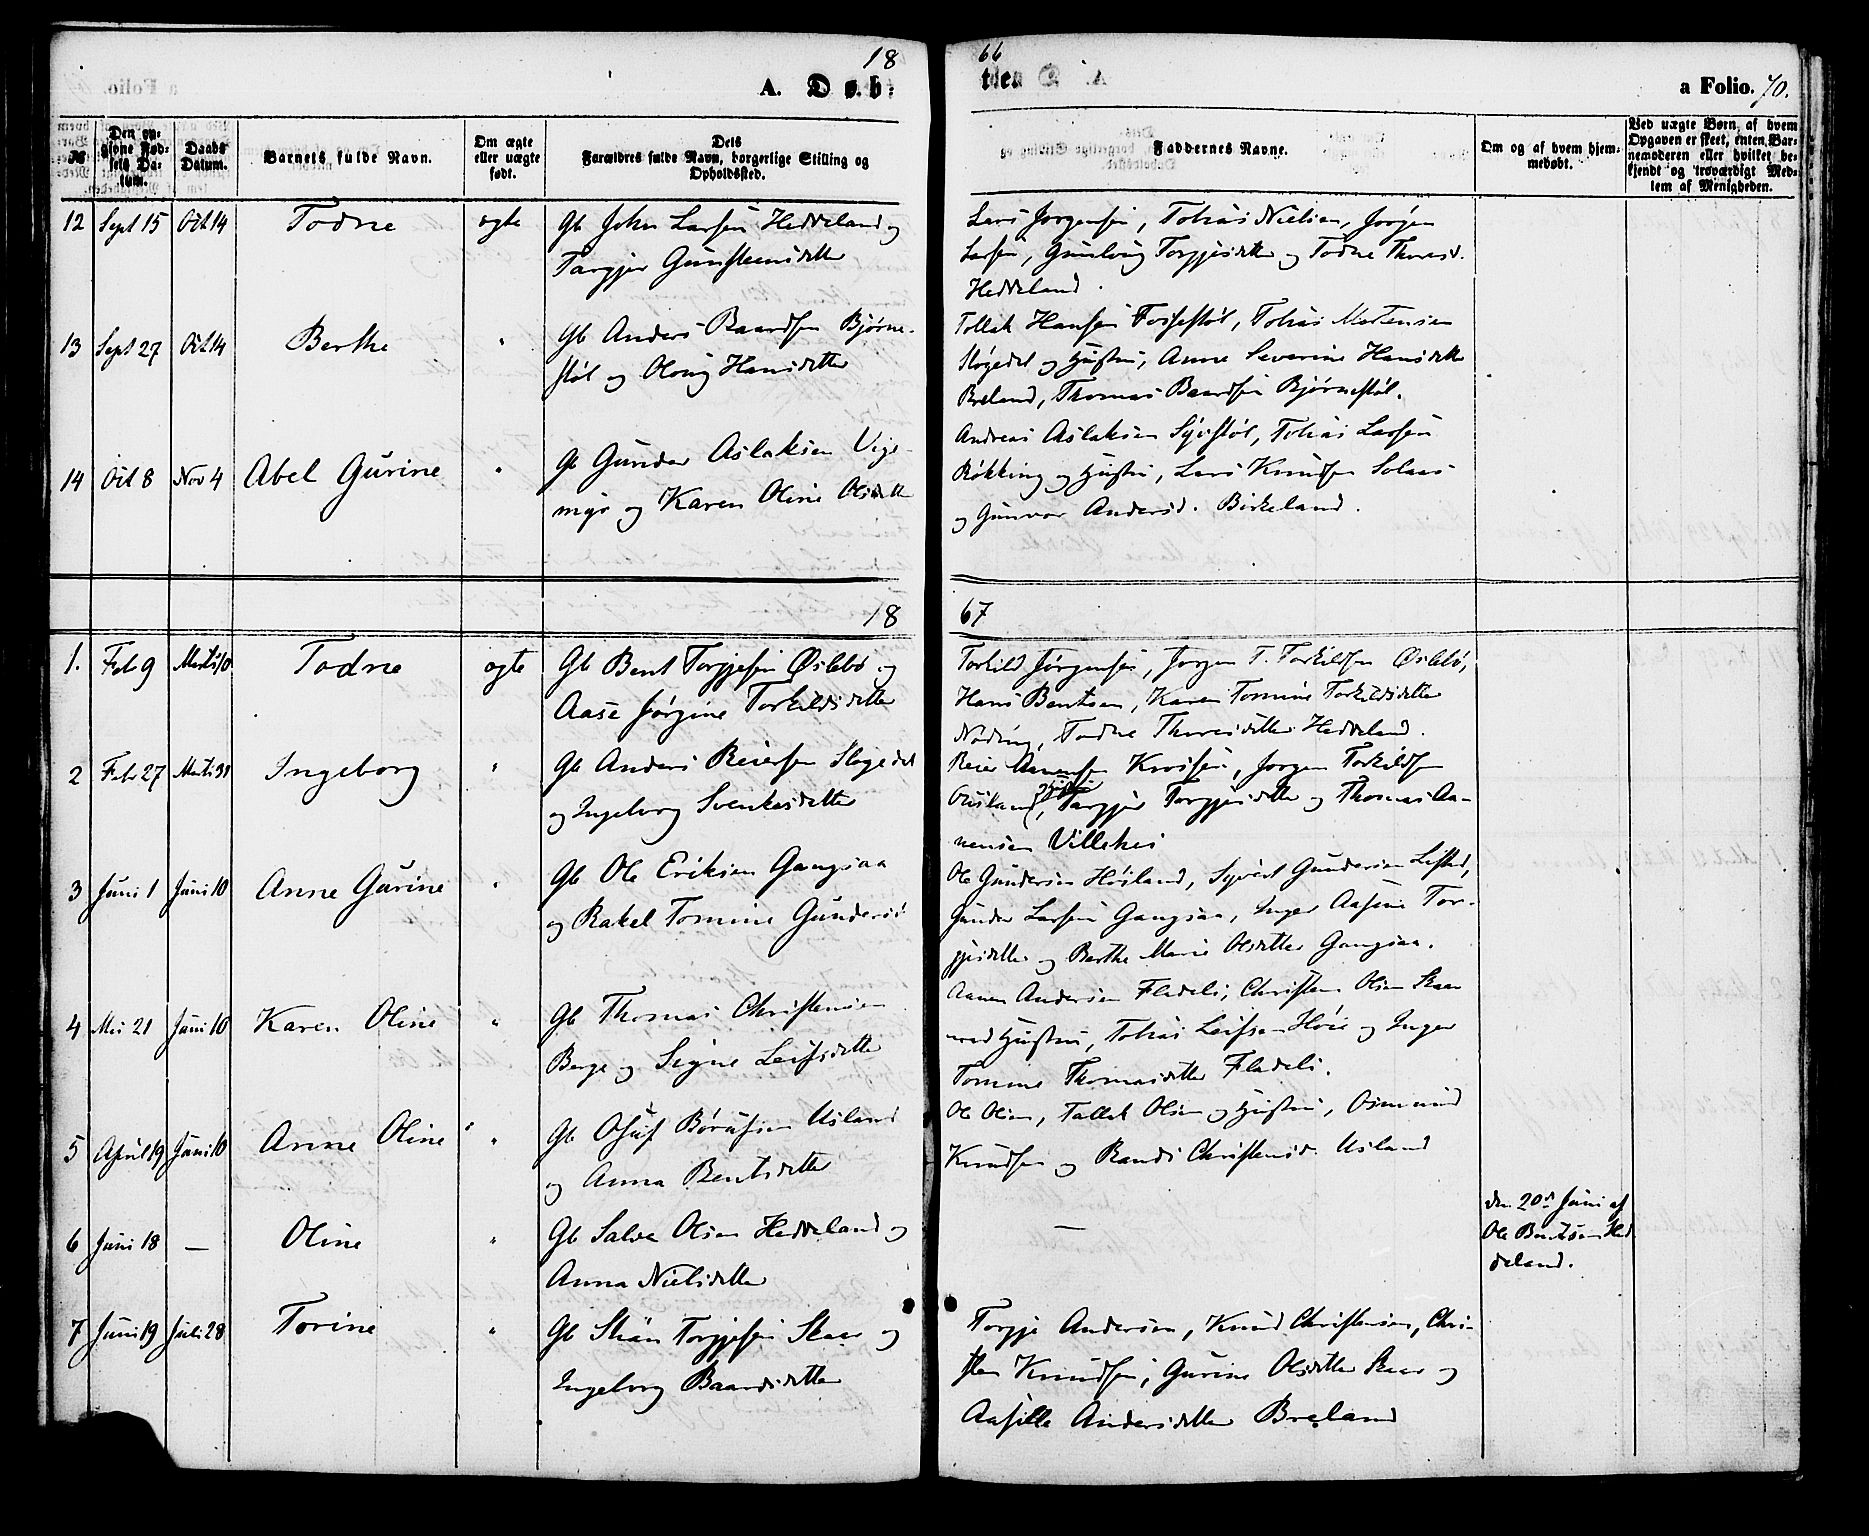 18 66
A. Døbte. a Folio. 70.
№ Den opgivne Fødsels Datum. Daabs Datum. Barnets fulde Navn. Om ægte eller uægte født. Dets Forældres fulde Navn, borgerlige Stilling og Opholdssted. Faddernes Navne. Om og af hvem hjemmedøbt. Ved uægte Børn, af hvem Opgaven er skeet, enten Barnemoderen eller hvilket bekjendt og troværdigt Medlem af Menigheden.
12 Sept 15 Oct 14 Todne ægte Gb John Larsen Heddeland og
Targjer Gunsteensdatter
Lars Jørgensen, Tobias Nielsen, Jørgen
Larsen, Gunlaug Torgjesdatter og Todne Thoresd.
Heddeland.
13 Sept 27 Oct 14 Berthe " Gb Anders Baardsen Bjørne-
støl og Oloug Hansdatter
Tollak Hansen Fossestøl, Tobias Mortensen
Sløgedal og Hustru, Anne Severine Hansdatter
Breland, Thomas Baardsen Bjørnestøl.
14 Oct 8 Nov 4 Abel Gurine " Gb Gunder Aslaksen Vige-
myr og Karen Oline Olsdatter
Andreas Aslaksen Syvstøl, Tobias Larsen
Røkking og Hustru, Lars Knudsen Solaas
og Gunvor Andersd. Birkeland.
18 67
1. Feb 9 Marts 10 Todne ægte Gb Bent Torgjesen Øslebø og
Aase Jørgine Torkildsdatter
Torkild Jørgensen, Jørgen T. Torkildsen Øslebø,
Hans Bentsen, Karen Tomine Torkildsdatter
Nøding, Todne Thoresdatter Heddeland.
2 Febr 27 Marts 31 Ingeborg " Gb Anders Reiersen Sløgedal
og Ingeborg Svenkesdatter
Reier Aanensen Krossen, Jørgen Torkildsen
Hustru
Targjer Torgjesdatter og Thomas Aa-
nensen
3 Juni 1 Juni 10 Anne Gurine " Gb Ole Eriksen Gangsaa
og Rakel Tomine Gundersd
Ole Gundersen Høiland, Syvert Gundersen
Gunder Larsen Gangsaa, Inger Aasine Tor-
gjesdatter og Berthe Marie Olsdatter Gangsaa.
4 Mai 21 Juni 10 Karen Oline " Gb Thomas Christensen
Berge og Signe Leifsdatter
Aanen Andersen Fladeli, Christen Olsen Skaar
med Hustru, Tobias Leifsen Høie og Inger
Tomine Thomasdatter Fladeli.
5 April 19 Juni 10 Anne Oline " Gb Osuf Børufsen Usland
og Anna Bentsdatter
Ole Olsen, Tallak Olsen og Hustru, Osmund
Knudsen og Randi Christensd. Usland
6 Juni 18 — Oline " Gb Salve Olsen Heddeland og
Anna Nielsdatter
—
den 20de Juni af
Ole Bentsen Hed
deland.
7 Juni 19 Juli 28 Torine " Gb Stian Torgjesen Skaar og
Ingeborg Baardsdatter
Torgje Andersen, Knud Christensen, Chri-
sten Knudsen, Gurine Olsdatter Skaar og
Aasille Andersdatter Breland